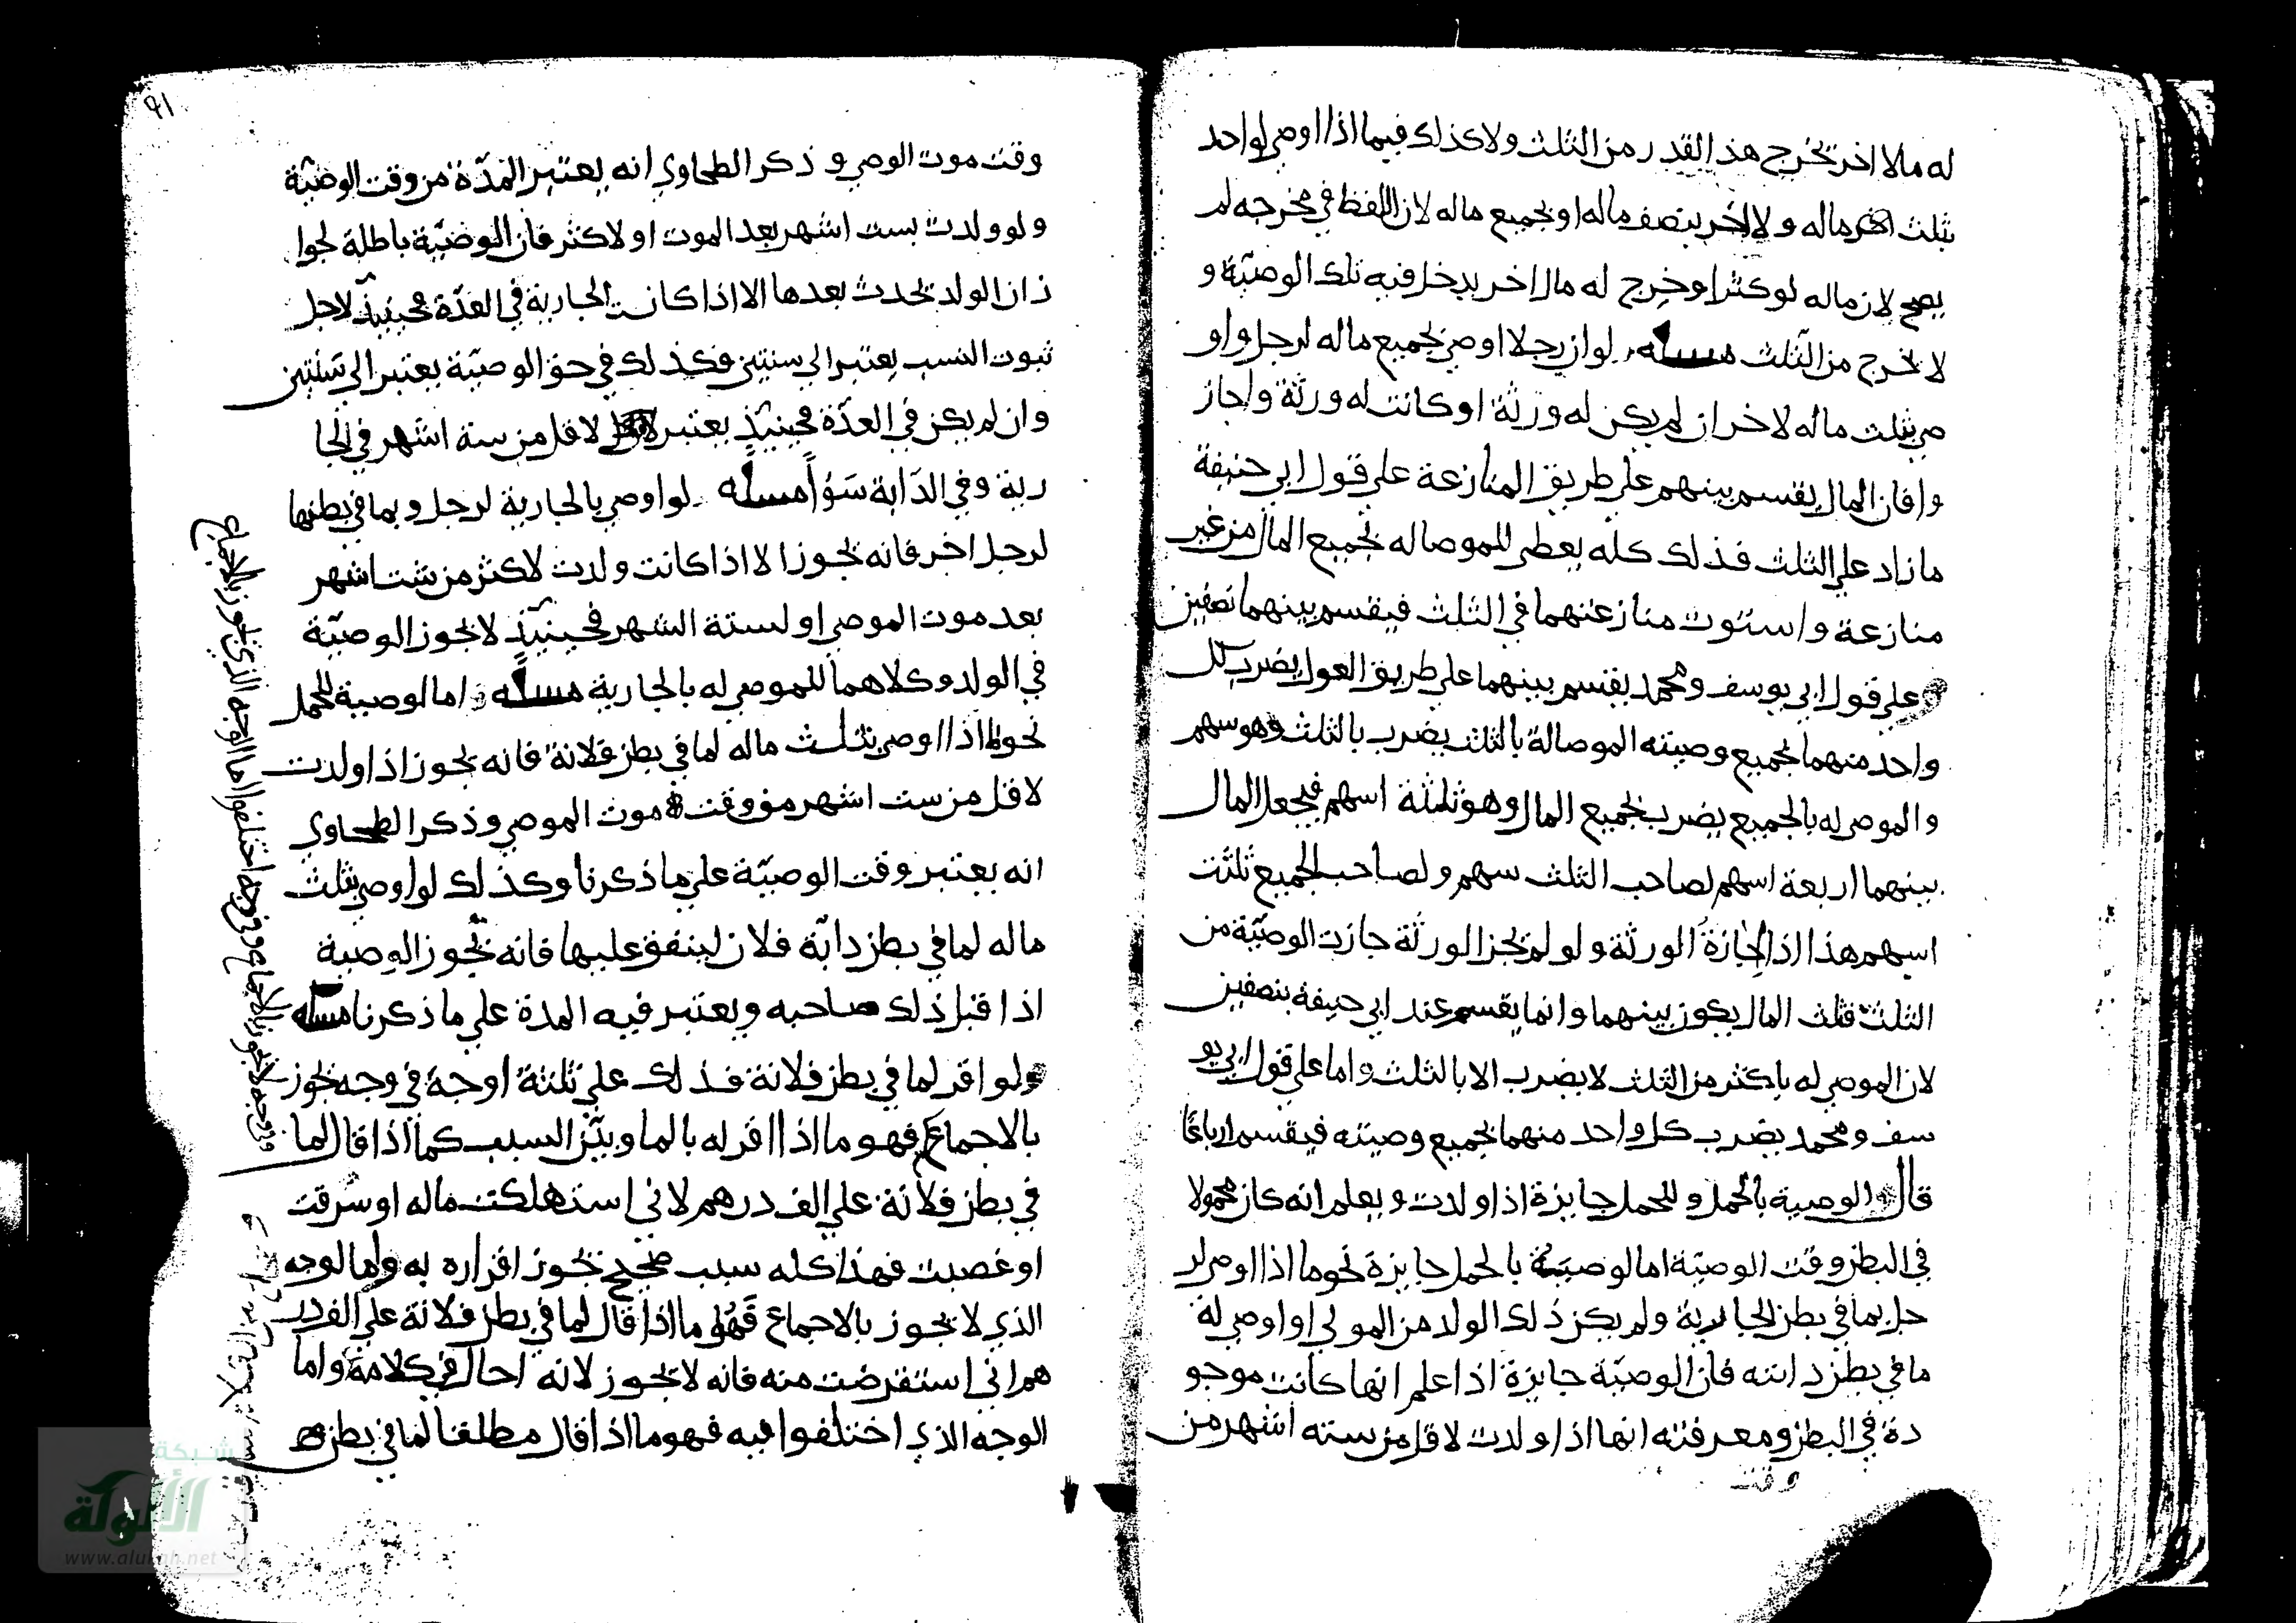 له مالا اخر تخرج هذا القدر من الثلث ولا كذلك فيما اذا اوصى لواحد
بثلث ماله ولاخر بنصف ماله او بجميع ماله لان اللفظ في مخرجه لم
يصح لان ماله لو كثر او خرج له مال اخر يدخل فيه تلك الوصية و
لا تخرج من الثلث مسئله لو ان رجلا اوصى بجميع ماله لرجل واو
صى بثلث ماله لاخر ان لم يكن له ورثة او كانت له ورثة واجاز
وا فان المال يقسم بينهم على طريق المنازعة على قول ابي حنيفة
ما زاد على الثلث فذلك كله يعطى للموصا له بجميع المال من غير
منازعة واستوت منازعتهما في الثلث فيقسم بينهما نصفين
وعلى قول ابي يوسف ومحمد يقتسم بينهما على طريق العول يضرب كل
واحد منهما بجميع وصيته الموصا له بالثلث يضرب بالثلث وهو سهم
والموصى له بالجميع يضرب بجميع المال وهو ثلثة اسهم فيجعل المال
بينهما اربعة اسهم لصاحب الثلث سهم ولصاحب الجميع ثلثت
اسهم هذا اذا اجازة الورثة ولو لم تجز الورثة جازت الوصية من
الثلث فثلث المال يكون بينهما وانما يقسم عند ابي حنيفة بنصفين
لان الموصى له باكثر من الثلث لا يضرب الا بالثلث واما على قول ابي يو
سف ومحمد يضرب كل واحد منهما بجميع وصيته فيقسم ارباعًا
قال الوصية بالحمل وللحمل جايزة اذا ولدت ويعلم انه كان محمولا
في البطن وقت الوصية اما الوصية بالحمل جايزة نحو ما اذا اوصى لر
جل بما في بطن الجارية ولم يكن ذلك الولد من المولى او اوصى له
ما في بطن دابته فان الوصية جايزة اذا علم انها كانت موجو
دة في البطن ومعرفته انها اذا ولدت لاقل من سته اشهر من
وقت
٩١
وقت موت الوصى وذكر الطحاوي انه يعتبر المدّة من وقت الوصية
ولو ولدت بست اشهر بعد الموت او لاكثر فان الوصيّة باطلة لجوا
ز ان الولد يحدث بعدها الا اذا كانت الجارية في العدّة فحينيذ لاجل
ثبوت النسب يعتبر الى سنتين فكذلك في حق الوصيّة يعتبر الى سنتين
وان لم يكن في العدّة فحينيذ يعتبر لاقل من ستة اشهر في الجا
رية وفي الدابة سوأ مسئله لو اوصى بالجارية لرجل وبما في بطنها
لرجل اخر فانه يجوز الا اذا كانت ولدت لاكثر من ست اشهر
بعد موت الموصى او لستة اشهر فحينيذ لا يجوز الوصيّة
في الولد وكلاهما للموصى له بالجارية مسئله واما الوصية للحمل
نحو ما اذا اوصى بثلث ماله لما في بطن فلانة فانه يجوز اذا ولدت
لاقل من ست اشهر من وقت موت الموصى وذكر الطحاوي
انه يعتبر وقت الوصيّة على ما ذكرنا وكذلك لو اوصى بثلث
ماله لما في بطن دابّة فلان لينفق عليها فانه يجوز الوصية
اذا قبل ذلك صاحبه ويعتبر فيه المدة على ما ذكرنا مسئله
ولو اقر لما في بطن فلانة فذلك على ثلثة اوجه في وجه يجوز
بالاجماع فهو ما اذا اقر له بالمال وبيّن السبب كما اذا قال لما
في بطن فلانة على الف درهم لاني استهلكت ماله او سرقت
او غصبت فهذا كله سبب صحيح يجوز اقراره به واما الوجه
الذي لا يجوز بالاجماع فهو ما اذا قال لما في بطن فلانة على الف در
هم اني استقرضت منه فانه لا يجوز لانه احال في كلامه واما
الوجه الذي اختلفوا فيه فهو ما اذا قال مطلقا لما في بطن
وفي وجه لا يجوز بالاجماع وفي وجه اختلفوا اما الوجه الذي يجوز بالاجماع
شبكة
الألوكة
www.alukah.net